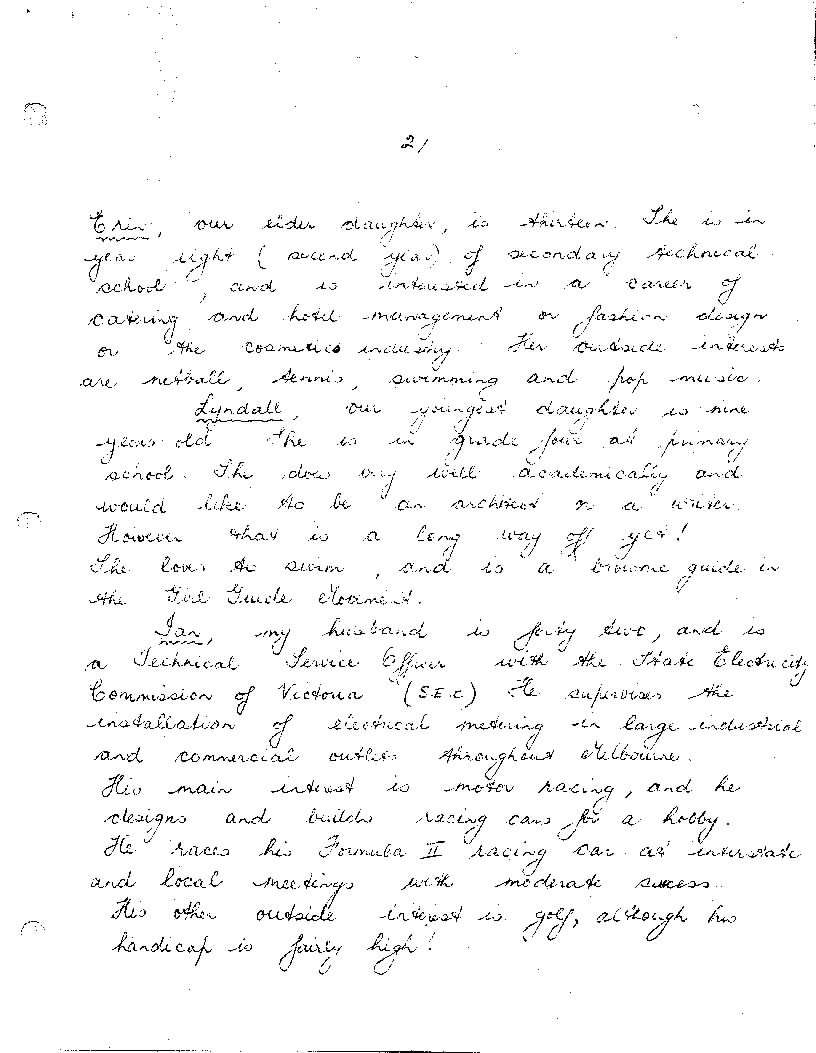 2/
Erin, our elder daughter, is thirteen. She is in
year eight (second year) of secondary technical
school, and is interested in a career of
catering and hotel management or fashion design
or the cosmetics industry. Her outside interests
are netball, tennis, swimming and pop music.
Lyndall, our youngest daughter is nine
years old. She is in grade four at primary
school. She does very well academically and
would like to be an architect or a writer.
However that is a long way off yet!
She loves to swim, and is a brownie guide in
the Girl Guide Movement.
Ian, my husband is forty two, and is
a Technical Service Officer with the State Electricity
Commission of Victoria (S.E.C) He supervises the
installation of electrical metering in large industrial
and commercial outlets throughout Melbourne.
His main interest is motor racing, and he
designs and builds racing cars for a hobby.
He races his Formula II racing car at interstate
and local meetings with moderate success.
His other outside interest is golf, although his
handicap is fairly high!